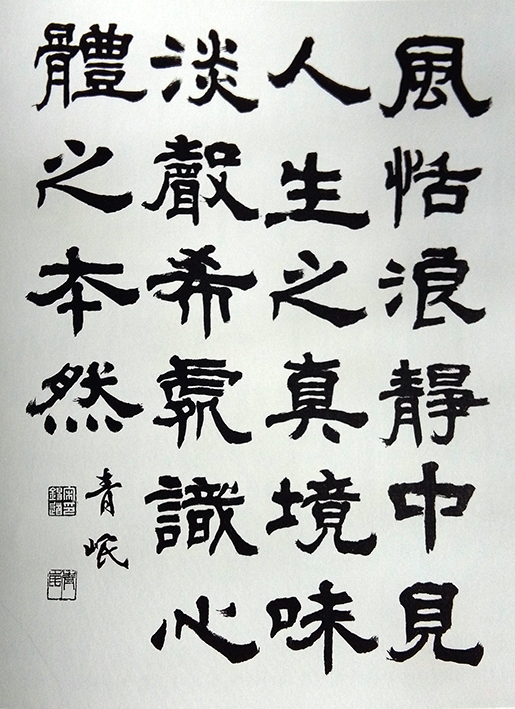 風恬浪靜中見
人生之真境味
淡聲希處識心
體之本然
青岷